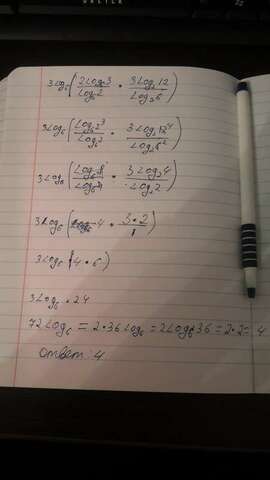 3Log₆(2Log₆3/Log₆2 * 3Log₂12/Log₂6)
3Log₆(Log₆2³/Log₆2 * 3Log₂12/Log₂6²)
3Log₆(Log₆8/Log₆ * 3Log₂4/Log₂2)
3Log₆(4 * 3*2/1)
3Log₆(4*6)
3Log₆*24
72Log₆ = 2*36Log₆ = 2Log₆36 = 2*2 = 4
Ответ: 4